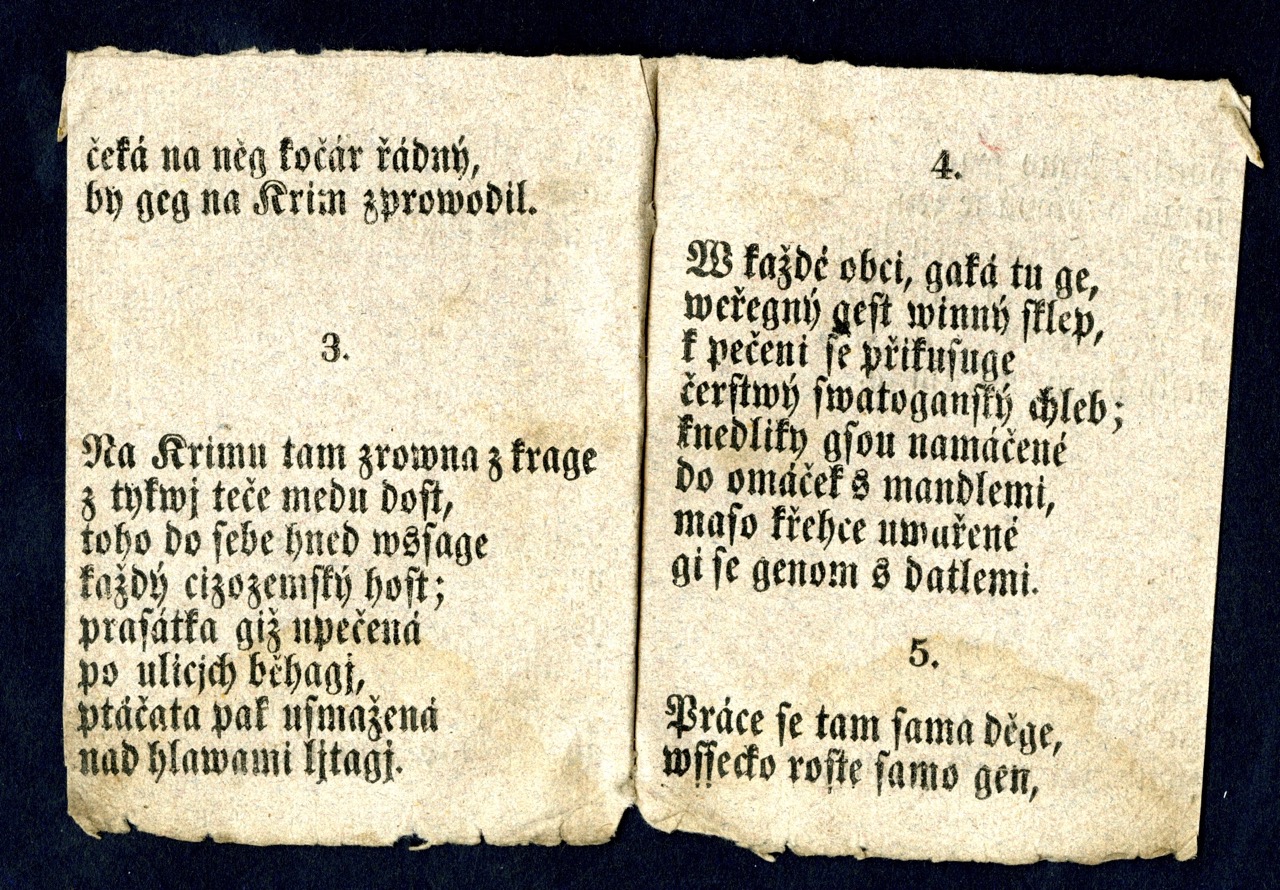 čeká na něg kočár řádný,
by geg na Krim zprowodil.
3.
Na Krimu tam zrowna z krage
z tykwj teče medu dost,
toho do sebe hned wsſage
každý cizozemſký hoſt;
praſátka giž upečená
po ulicjch běhagj,
ptáčata pak uſmažená
nad hlawami ljtagj.
4.
W každé obci, gaká tu ge,
weřegný geſt winný ſklep,
k pečeni ſe přikuſuge
čerſtwý ſwatoganſký chleb;
knedliky gſou namáčené
do omáček s mandlemi,
maſo křehce uwařené
gi ſe genom s datlemi.
5.
Práce ſe tam ſama děge,
wſſecko roſte ſamo gen,